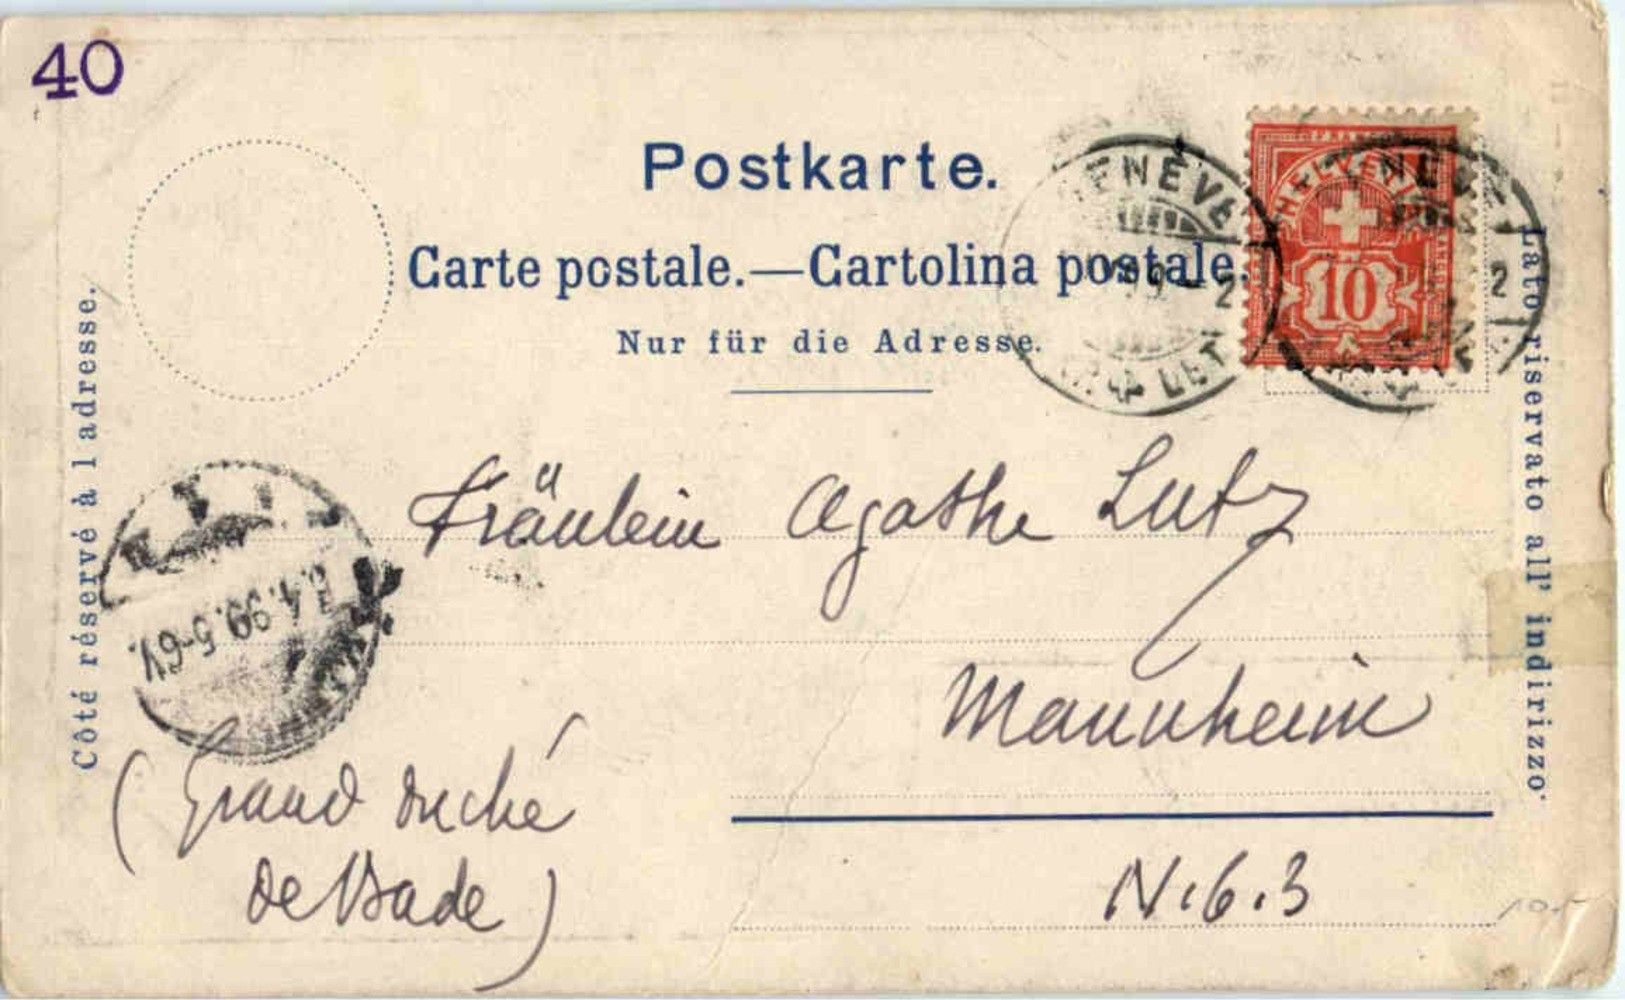 40
Postkarte.
Carte postale.—Cartolina postale.
Nur für die Adresse.
Côté réservé à l adresse.
Lato riservato all' indirizzo.
GENÈVE
LET
HELVETIA
10
2
.4.99.5-6V.
Fräulein Agathe Lutz
Mannheim
(Grand duché
de Bade)
N.6.3